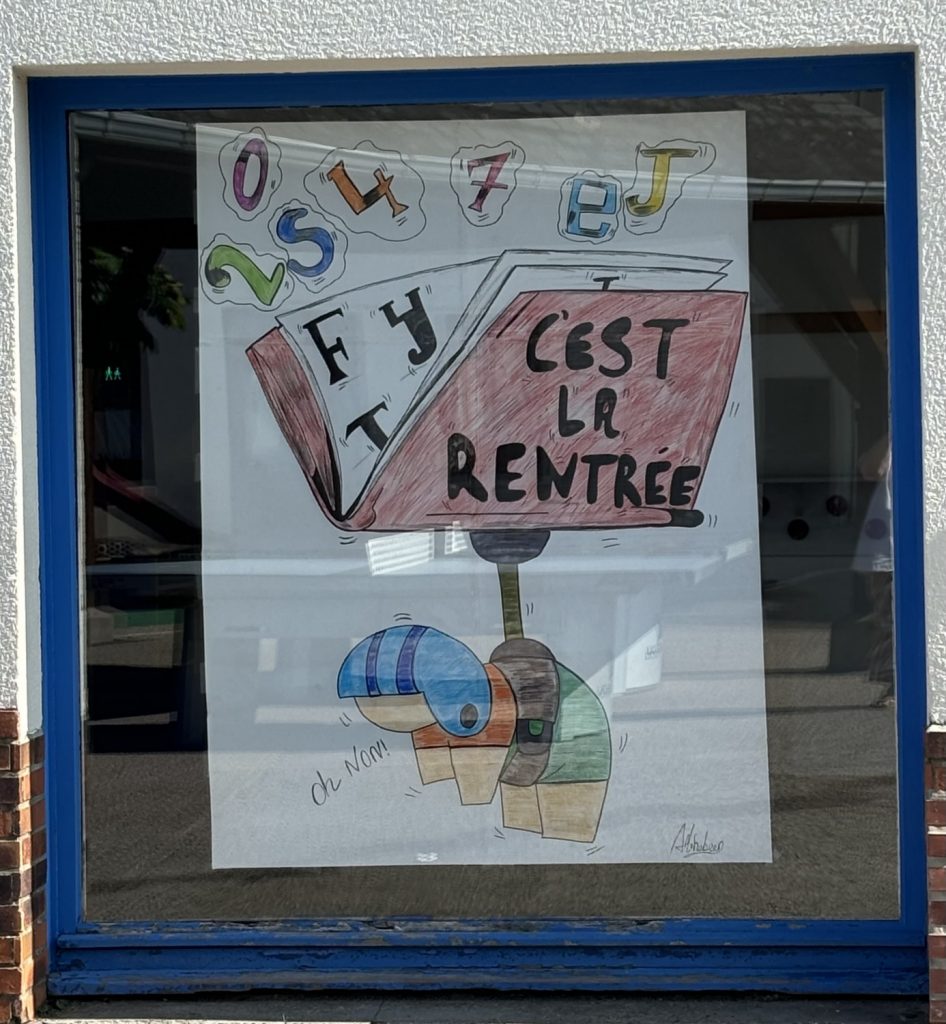 0 4 7 e J
2 S
F Y T
T
C'EST
LA
RENTRÉE
oh NON!